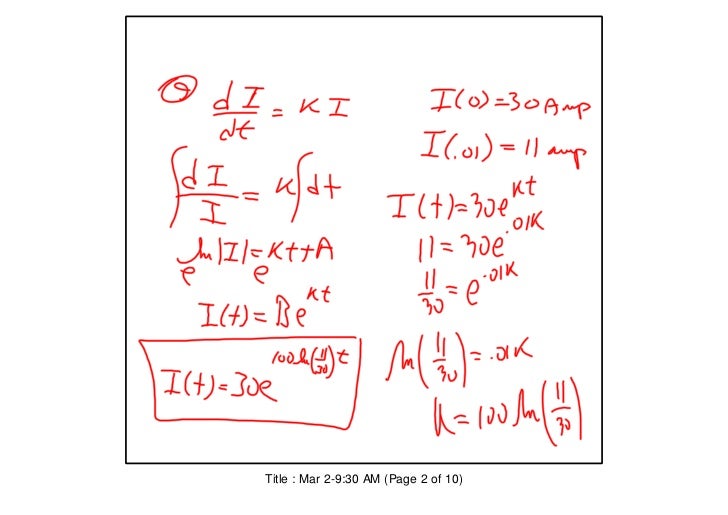 dI/dt = KI
∫dI/I = K∫dt
e^ln|I| = e^Kt+A
I(t) = Be^Kt
I(t) = 30e^100ln(11/30)t
I(0) = 30 Amp
I(.01) = 11 amp
I(t) = 30e^Kt
11 = 30e^.01K
11/30 = e^.01K
ln(11/30) = .01K
K = 100 ln(11/30)
Title : Mar 2-9:30 AM (Page 2 of 10)